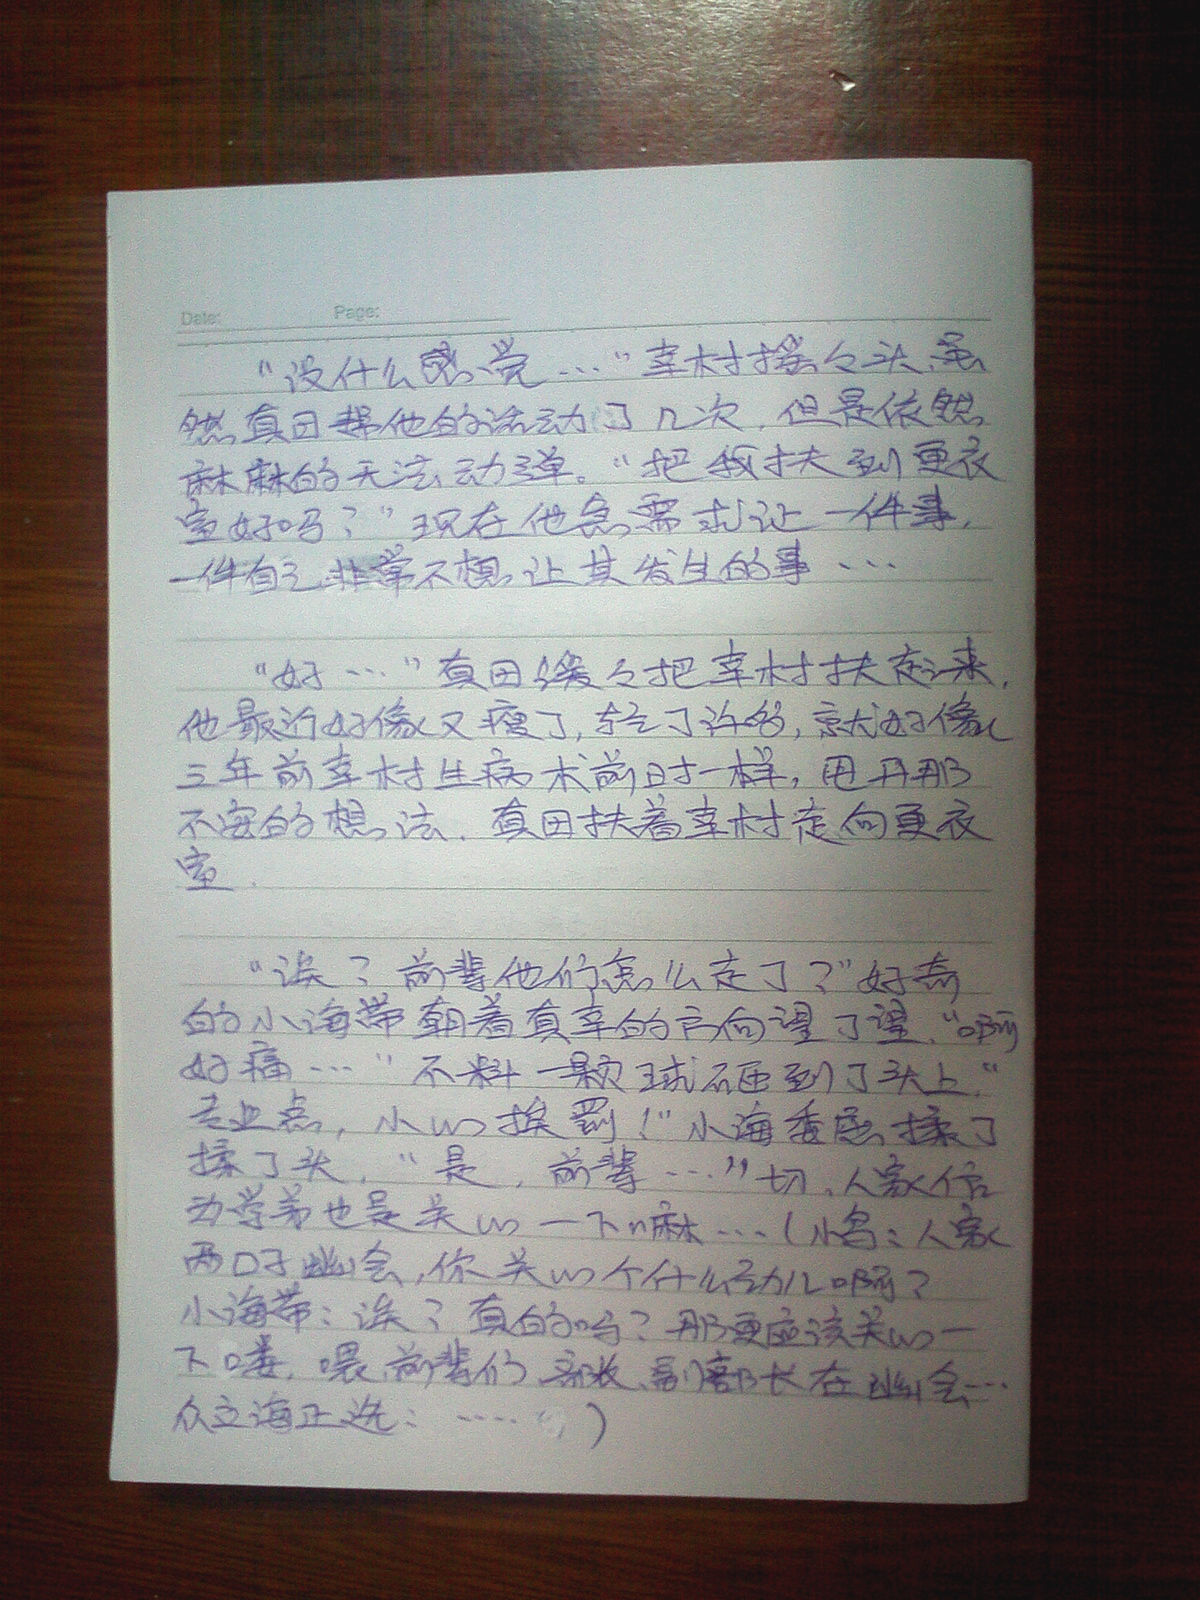 Date: Page:
“没什么感觉…”幸村摇々头,虽
然真田替他的活动了几次,但是依然
麻麻的无法动弹。“把我扶到更衣
室好吗？”现在他急需求证一件事,
一件自己非常不想让其发生的事…
“好…”真田缓々把幸村扶起来,
他最近好像又瘦了,轻了许多,就好像
三年前幸村生病术前时一样,甩开那
不安的想法,真田扶着幸村走向更衣
室.
“诶？前辈他们怎么走了？”好奇
的小海带朝着真幸的方向望了望,“啊
好痛…”不料一颗球砸到了头上,“
专业点,小心挨罚!”小海委屈揉了
揉了头,“是,前辈…”切,人家作
为学弟也是关心一下嘛…(小名:人家
两口子幽会,你关心个什么劲儿啊？
小海带:诶？真的吗？那更应该关心一
下喽,喂,前辈们,部长、副部长在幽会…
众立海正选:……)